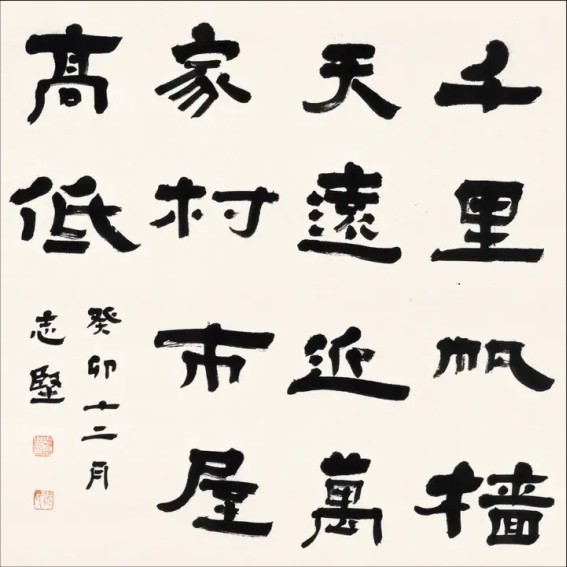 千里帆樯
天遠近萬
家村市屋
髙低
癸卯十二月
志堅